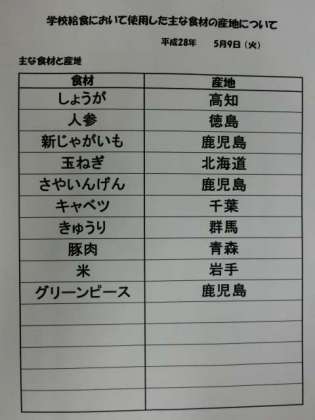 学校給食において使用した主な食材の産地について
平成28年 5月9日（火）
主な食材と産地
食材 産地
しょうが 高知
人参 徳島
新じゃがいも 鹿児島
玉ねぎ 北海道
さやいんげん 鹿児島
キャベツ 千葉
きゅうり 群馬
豚肉 青森
米 岩手
グリーンピース 鹿児島